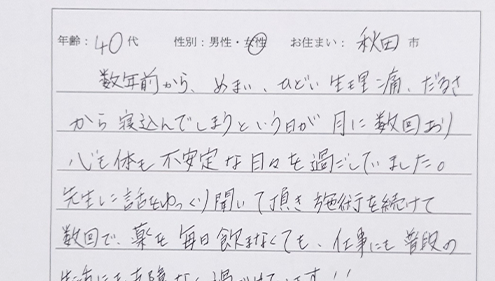 年齢：40代 性別：男性・女性 お住まい：秋田市
数年前から、めまい、ひどい生理痛、だるさ
から寝込んでしまうという日が月に数回あり
心も体も不安定な日々を過ごしていました。
先生に話をゆっくり聞いて頂き施術を続けて
数回で、薬を毎日飲まなくても、仕事にも普段の
生活にも支障なく過ごせています!!